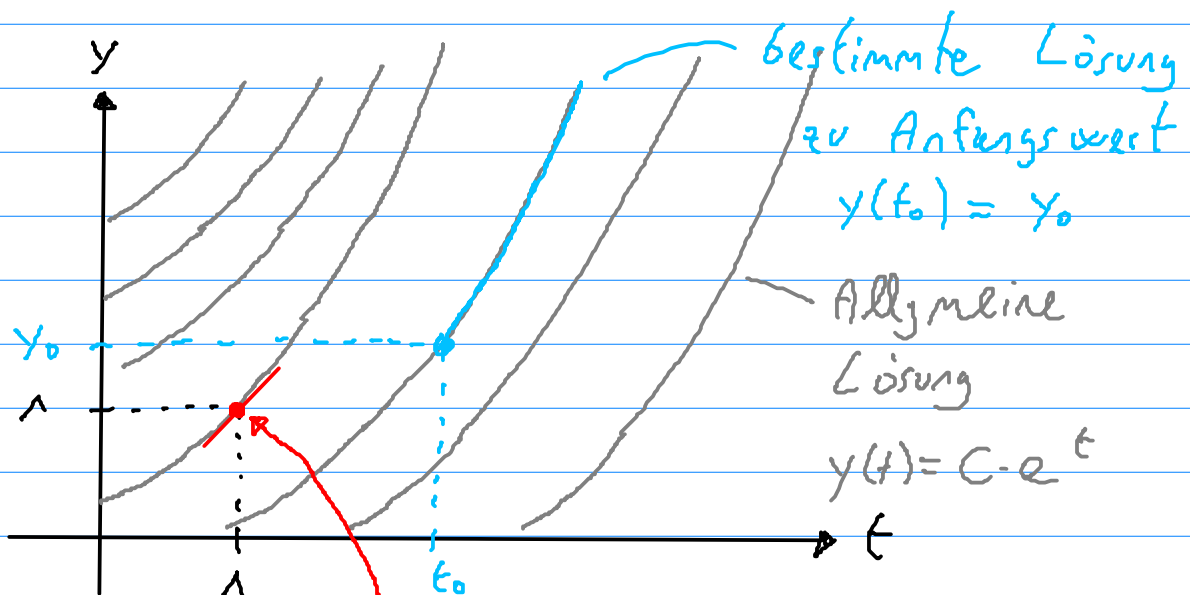 y
bestimmte Lösung
zu Anfangswert
y(t₀) = y₀
Allgmeine
Lösung
y(t) = C · e^t
y₀
1
t
1
t₀